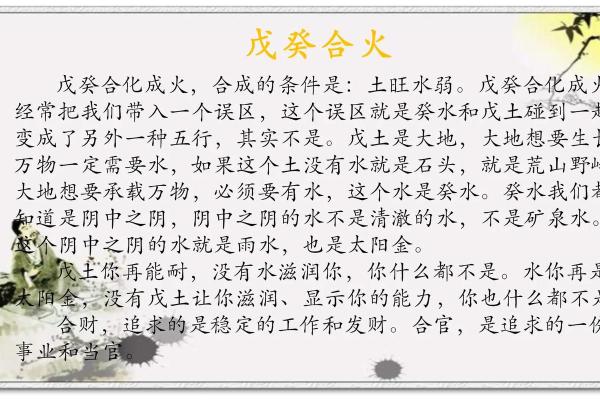 戊癸合火
戊癸合化成火，合成的条件是：土旺水弱。戊癸合化成火
经常把我们带入一个误区，这个误区就是癸水和戊土碰到一起
变成了另外一种五行，其实不是。戊土是大地，大地想要生长
万物一定需要水，如果这个土没有水就是石头，就是荒山野岭
大地想要承载万物，必须要有水，这个水是癸水。癸水我们都
知道是阴中之阴，阴中之阴的水不是清澈的水，不是矿泉水。
这个阴中之阴的水就是雨水，也是太阳金。
戊土你再能耐，没有水滋润你，你什么都不是。水你再是
太阳金，没有戊土让你滋润、显示你的能力，你也什么都不是
合财，追求的是稳定的工作和发财。合官，是追求的一份
事业和当官。